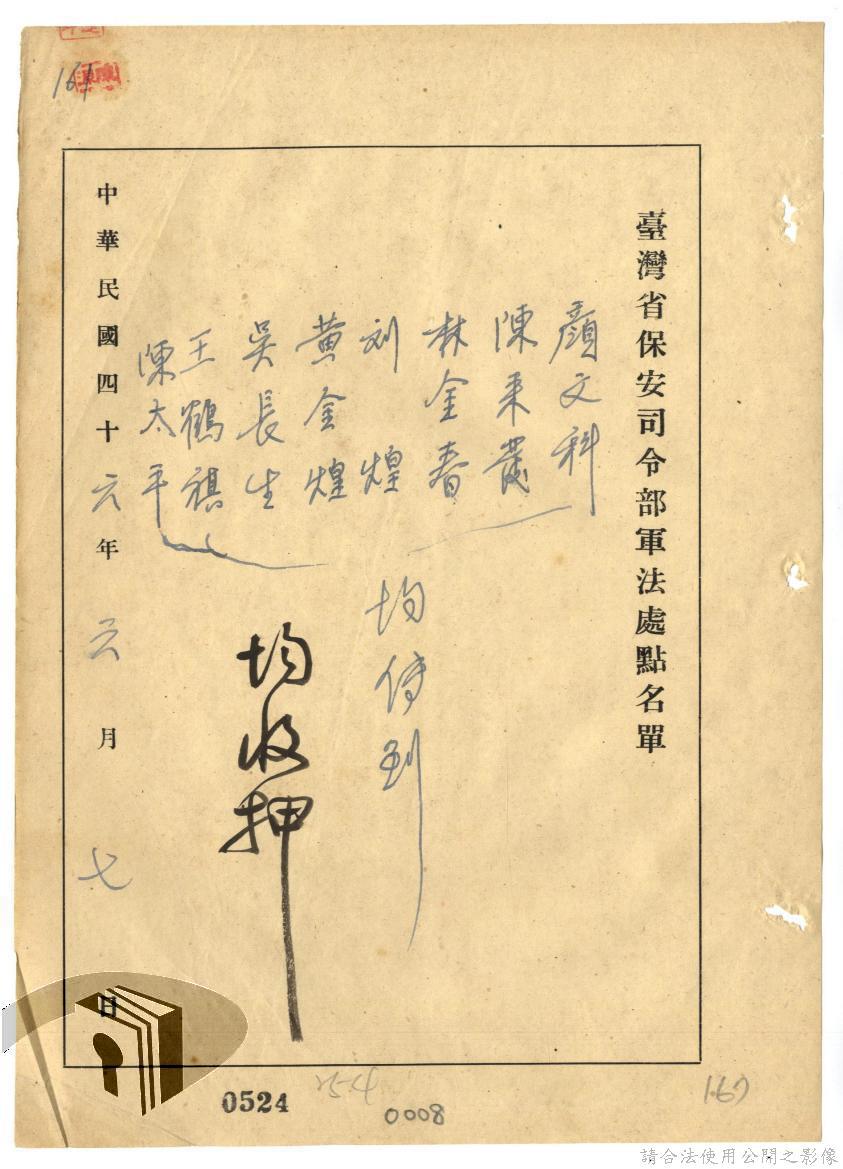 臺灣省保安司令部軍法處點名單
顏文科
陳秉義
林金春
刘煌
黃金煌
吳長生
王鶴祺
陳太平
均傳到
均收押
中華民國四十六年六月七日
161
0524
254
0008
167
請合法使用公開之影像